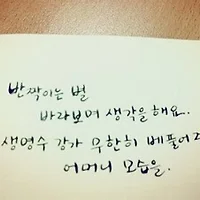 반짝이는 별
바라보며 생각을 해요.
생명수 강가 무한히 베풀어
어머니 모습을.